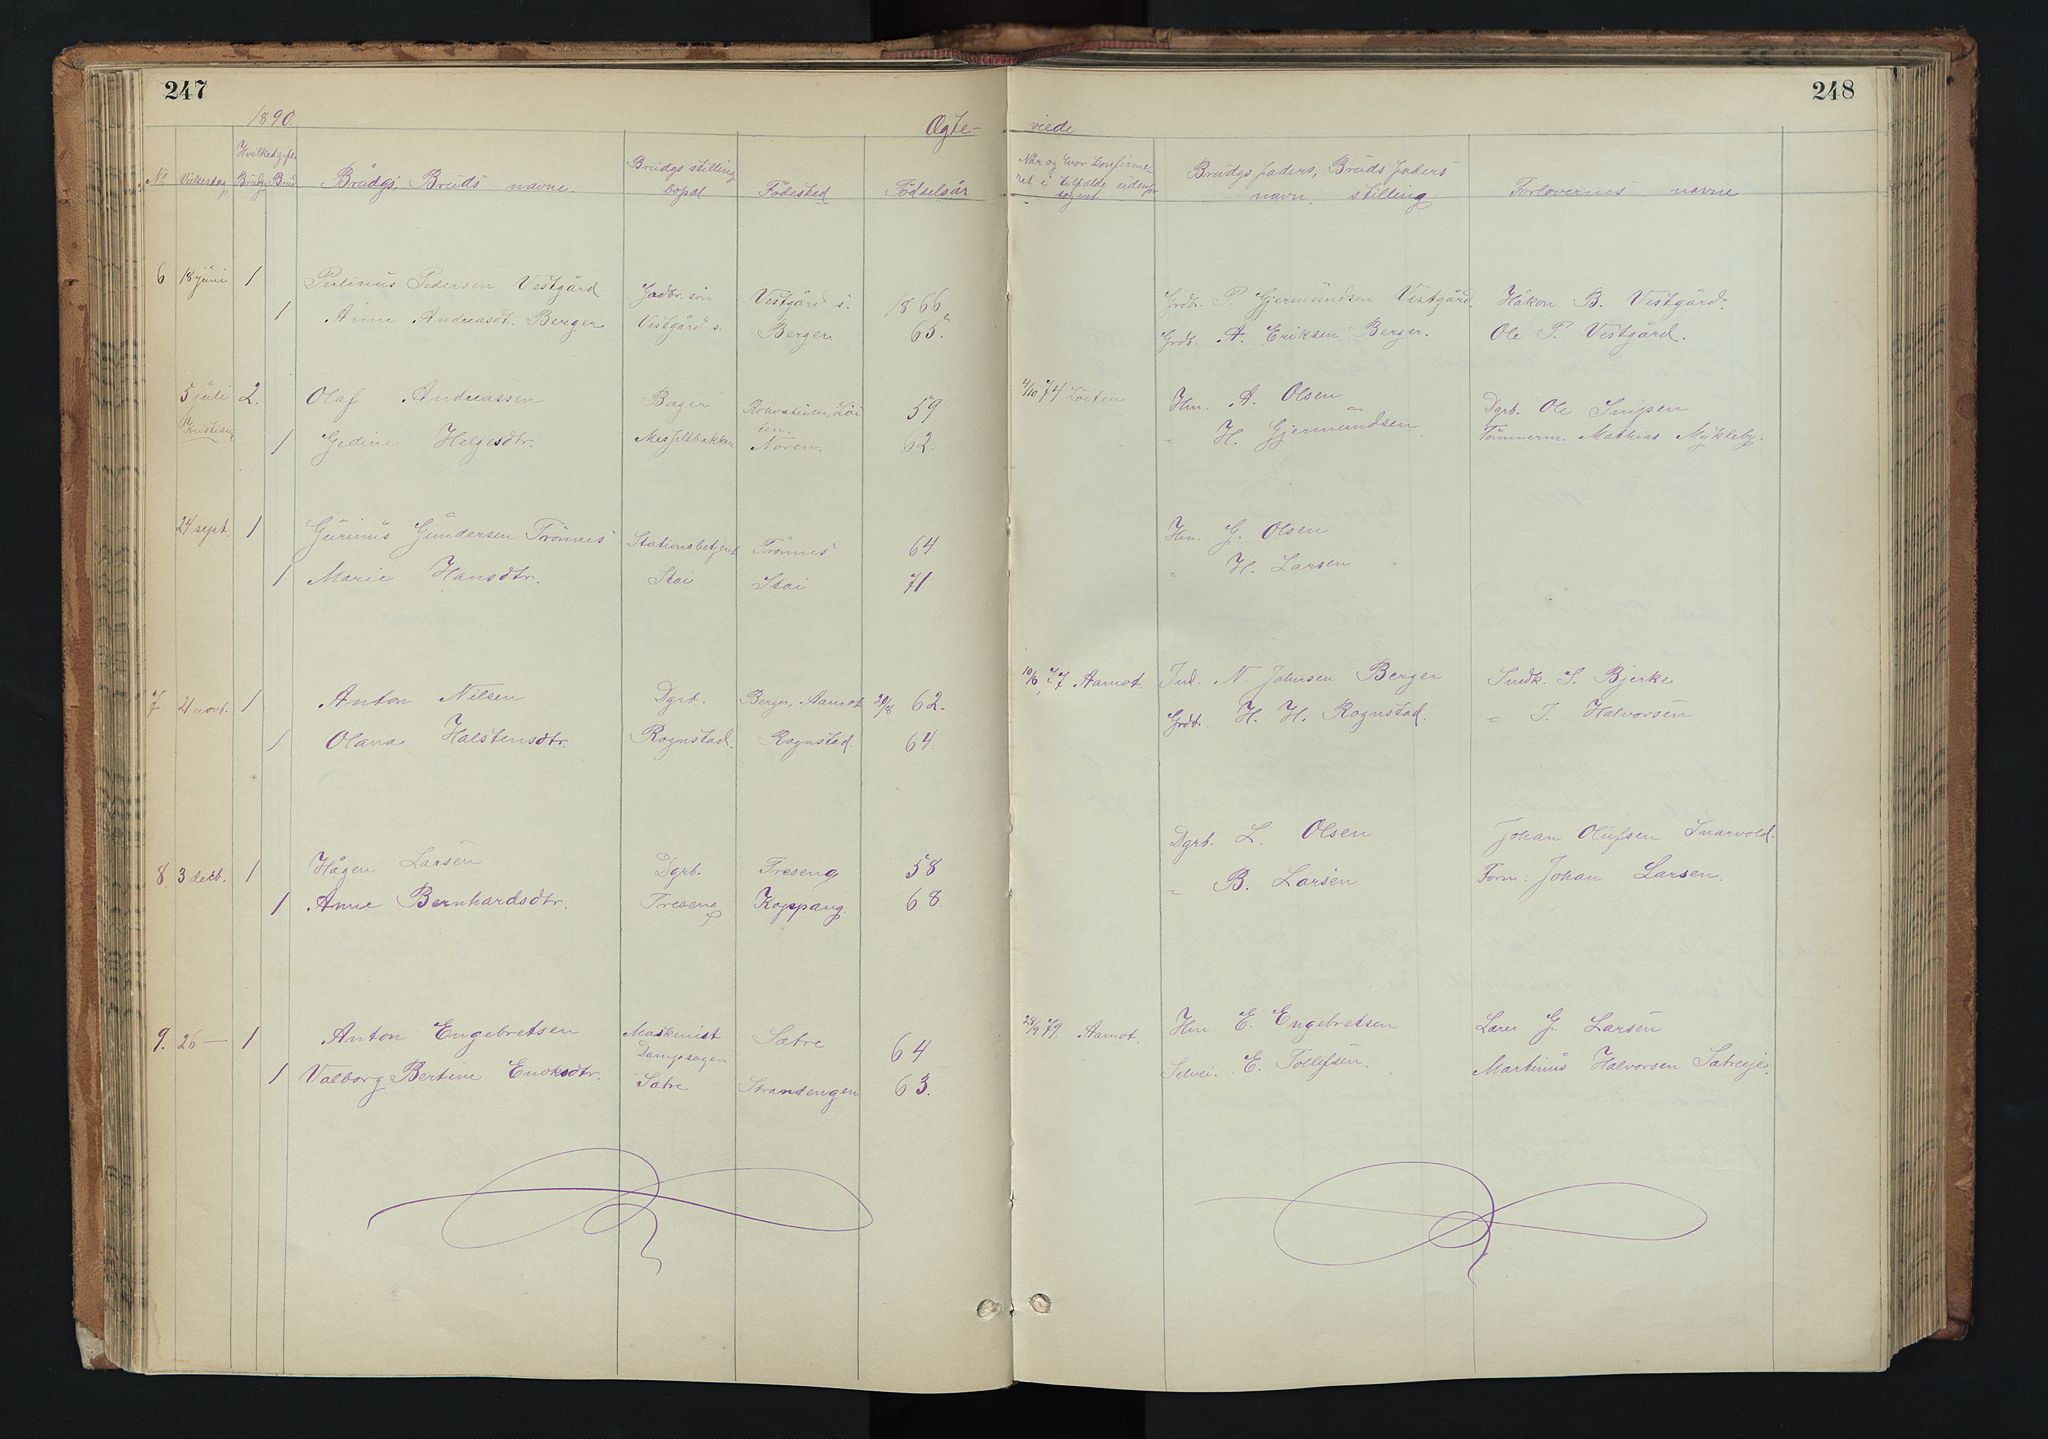 247
248
1890.
Ægte-
viede
No
Vielsesdag
Hvilket gifte
Brudg. Brud
Brudgs, Bruds navne.
Brudgs stilling
bopæl
Fødested
Fødselsår
Når og hvor konfirme-
ret i tilfælde udenfor
sognet
Brudgs faders, Bruds faders
navn, stilling
Forlovernes navne
6 18 juni 1 Pedersen Vestgård. Gadbr. søn Vestgård s. 1866 Grdb. P. Gjermundsen Vestgård Håkon B. Vestgård.
1 Anne Andreasdt. Berger Vestgård s. Berger 65. Grdb. A. Eriksen Berger. Ole P. Vestgård.
5 juli 2. Olaf Andreassen Bager 59 4/10 74 Löiten Hm. A. Olsen Dgrb. Ole Snipen
Kristiania 1 Gedine Helgesdtr. Messeltbakken Noren. 62. " H. Gjermundsen Tømmerm. Mathias Mykleby.
24 sept. 1 Gurinus Gundersen Trønnes Stationsbetjent Trønnes 64 Hm. G. Olsen
1 Marie Hansdtr. Stai Stai 71 " H. Larsen
7 21 novb. 1 Anton Nilsen Dgrb. Berger, Aamot 20/8 62. 10/6 77 Aamot. Ind. N. Johnsen Berger Smdk. S. Bjerke
1 Olava Halstensdtr. Rognstad. Rognstad. 64. Grdb. H. H. Rognstad. " T. Halvorsen
8 3 decb. 1 Hågen Larsen Dgrb. Treseng 58 Dgrb. L. Olsen Johan Olufsen Snarvold.
1 Anne Bernhardsdtr. Treseng Koppang. 68. " B. Larsen Form. Johan Larsen.
9. 26 — 1 Anton Engebretsen Maskinist Sætre 64 28/9 79. Aamot. Hm. E. Engebretsen Lærer G. Larsen
Dampsagen
1 Valborg Bertine Enoksdtr. Sætre Strandengen 63. Selvei. E. Tollefsen. Martinus Halvorsen Sætreeje.